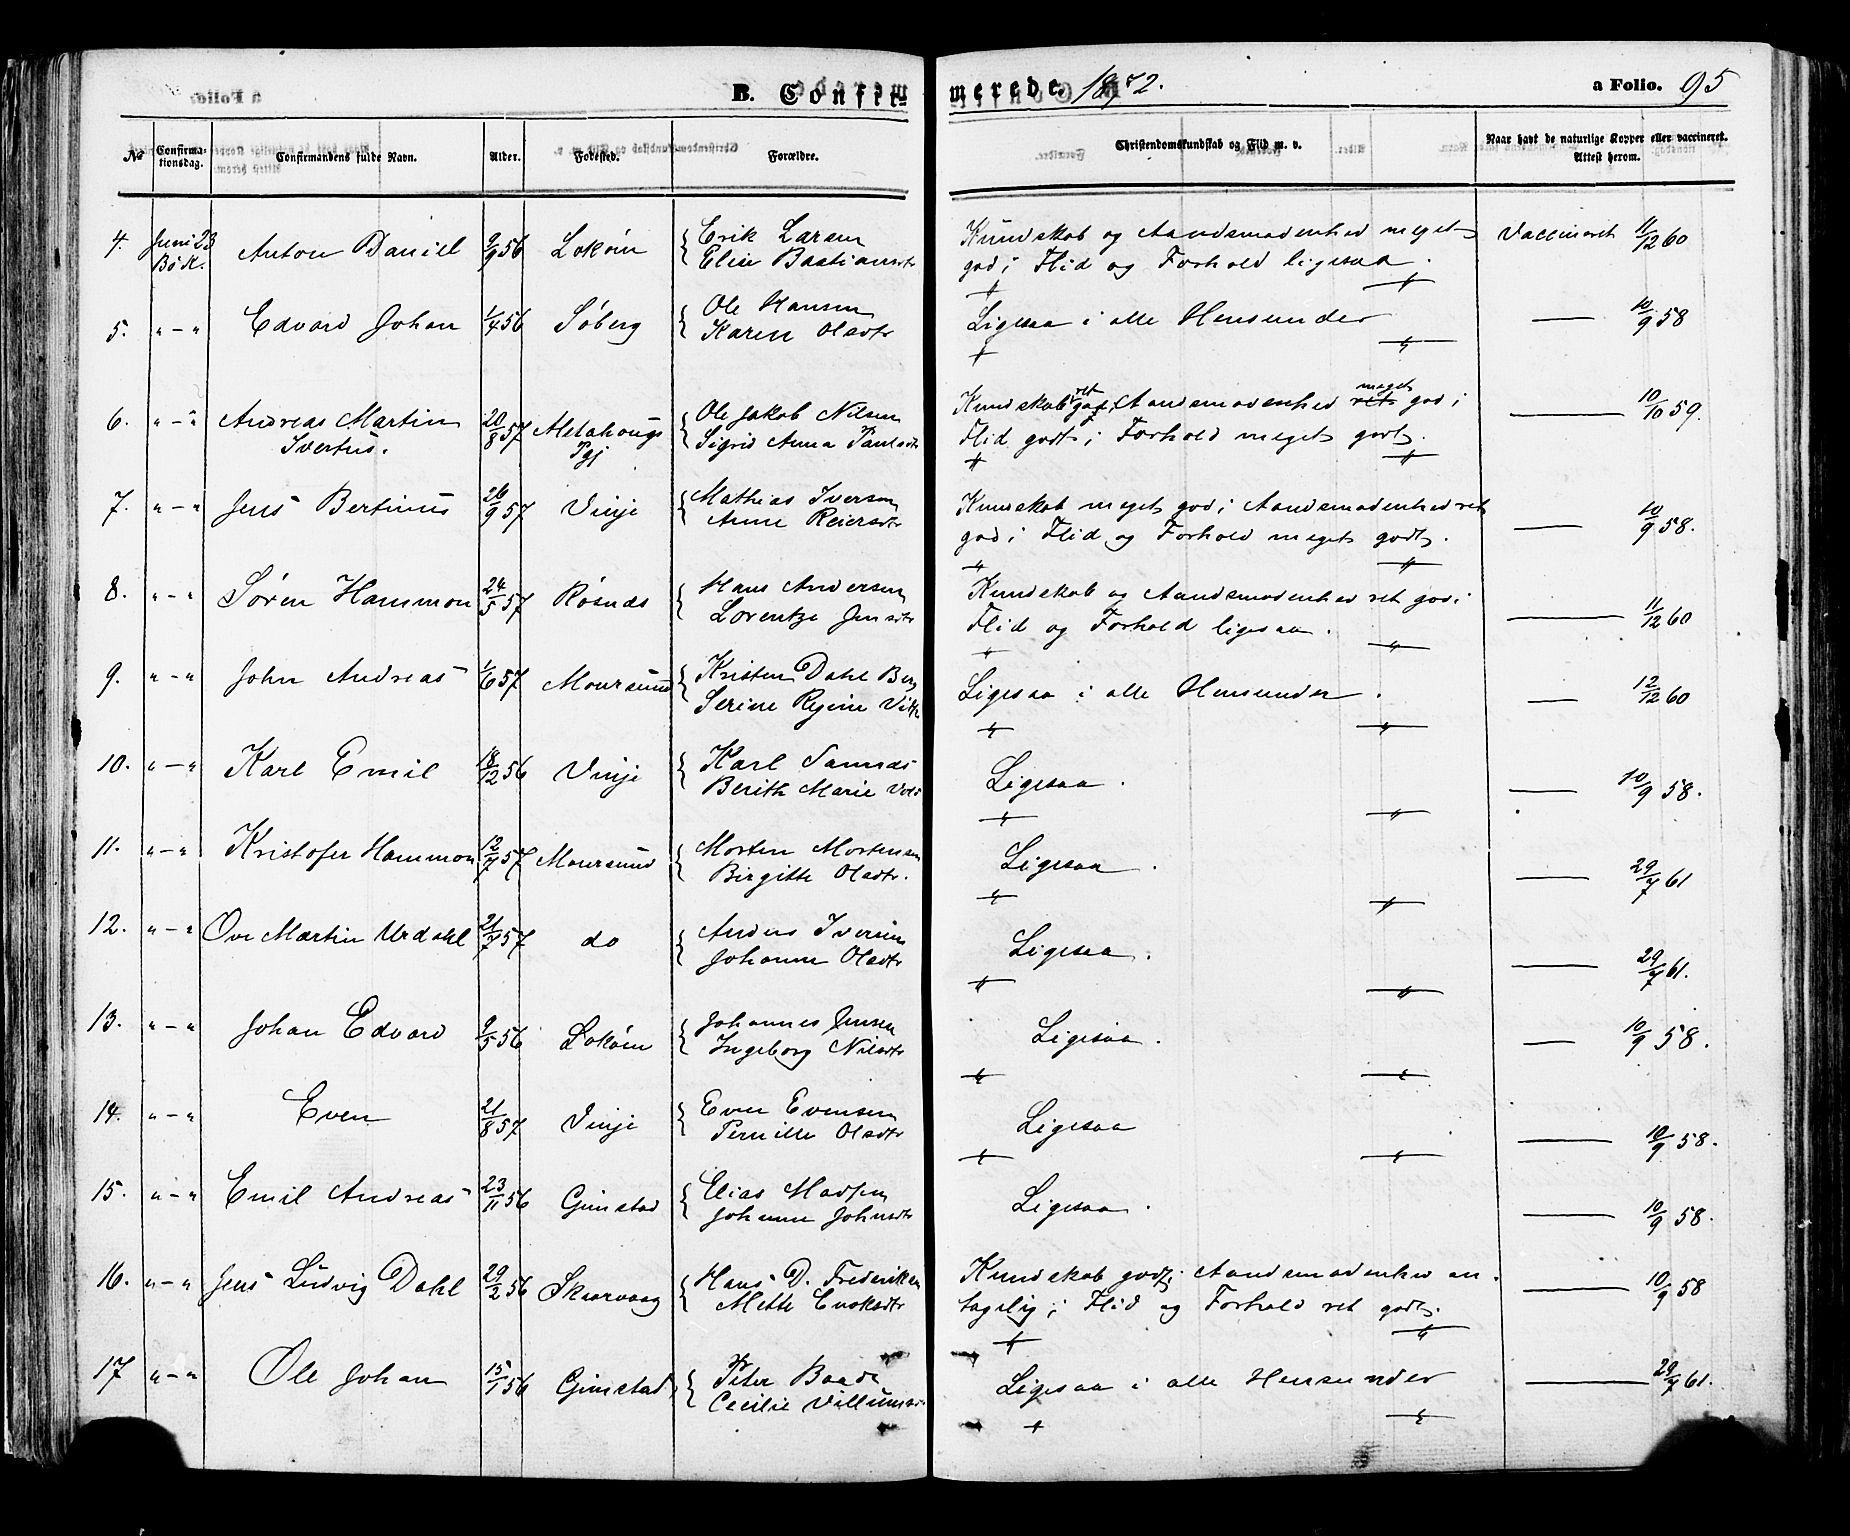 B. Confirmerede. 1872. a Folio. 95
No Confirmationsdag. Confirmandens fulde Navn. Alder. Fødested. Forældre. Christendomskundskab og Flid m. v. Naar havt de naturlige Kopper eller vaccineret. Attest herom.
4. Juni 23 Anton Daniel 9/9 56 Lokøin { Erik Larsen Kundskab og Aandsmodenhed meget Vaccineret 11/12 60
Bø K. Elen Bastiansdtr god; Flid og Forhold ligesaa.
5. " – " Edvard Johan 1/4 56 Søberg { Ole Hansen Ligesaa i alle Henseender — 10/9 58
Karen Olsdtr
6. " – " Andreas Martin 20/8 57 Alstahougs { Ole Jakob Nilsen Kundskab ret god, Aandsmodenhed ret meget god; — 10/10 59.
Ivertus. Pgj Sigrid Anna Paulsdtr Flid godt; Forhold meget godt.
7. " – " Jens Bertinus 26/9 57 Vinje { Mathias Iversen Kundskab meget god; Aandsmodenhed ret — 10/9 58.
Anne Reiersdtr god; Flid og Forhold meget godt.
8. " – " Søren Hammon 24/5 57 Røsnds { Hans Andersen Kundskab og Aandsmodenhed ret god; — 11/12 60
Lorentze Jensdtr Flid og Forhold ligesaa.
9. " – " John Andreas 1/6 57 Moursund { Kristen Dahl Berg Ligesaa i alle Henseender. — 12/12 60
Serine Regine
10. " – " Karl Emil 18/12 56 Vinje { Karl Ligesaa. — 10/9 58.
Berith Marie
11. " – " Kristofer Hammon 12/7 57 Moursund { Morten Mortensen Ligesaa. — 29/7 61
Birgitte Olsdtr.
12. " – " Ove Martin Urdahl 21/7 57 do { Anders Iversen Ligesaa. — 29/7 61.
Johanna Olsdtr
13. " – " Johan Edvard 9/5 56 Lokøin { Johannes Jensen Ligesaa. — 10/9 58.
Ingeborg Nilsdtr
14. " – " Even 21/8 57 Vinje { Even Evensen Ligesaa — 10/9 58.
Pernille Olsdtr
15. " – " Emil Andreas 23/11 56 Gimstad { Elias Madsen Ligesaa. — 10/9 58.
Johanna Johnsdtr
16. " – " Jens Ludvig Dahl 29/2 56 Skarvaag { Hans D. Frederiksen Kundskab godt; Aandsmodenhed an- — 10/9 58
Mette Enoksdtr tagelig; Flid og Forhold ret godt.
17 " – " Ole Johan 15/1 56 Gimstad { Peter Baade Ligesaa i alle Henseender — 29/7 61.
Cecilie Villumsdtr